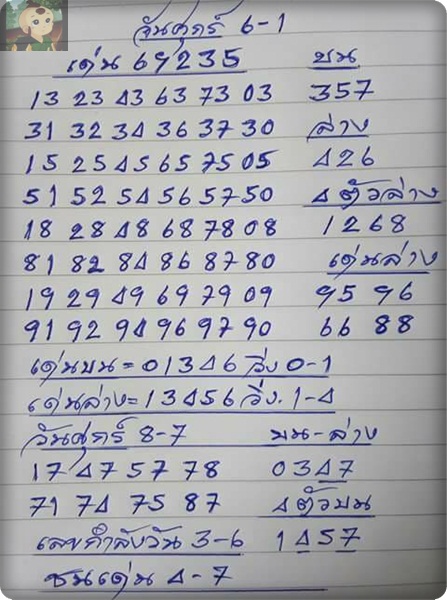 วันศุกร์ 6-1
เด่น 69235 บน
13 23 43 63 73 03 357
31 32 34 36 37 30 ล่าง
15 25 45 65 75 05 426
51 52 54 56 57 50 4 ตัวล่าง
18 28 48 68 78 08 1268
81 82 84 86 87 80 เด่นล่าง
19 29 49 69 79 09 95 96
91 92 94 96 97 90 66 88
เด่นบน = 01346 วิ่ง 0-1
เด่นล่าง = 13456 วิ่ง. 1-4
วันศุกร์ 8-7 บน-ล่าง
17 47 57 78 0347
71 74 75 87 4 ตัวบน
เลขกำลังวัน 3-6 1457
ชนเด่น 4-7